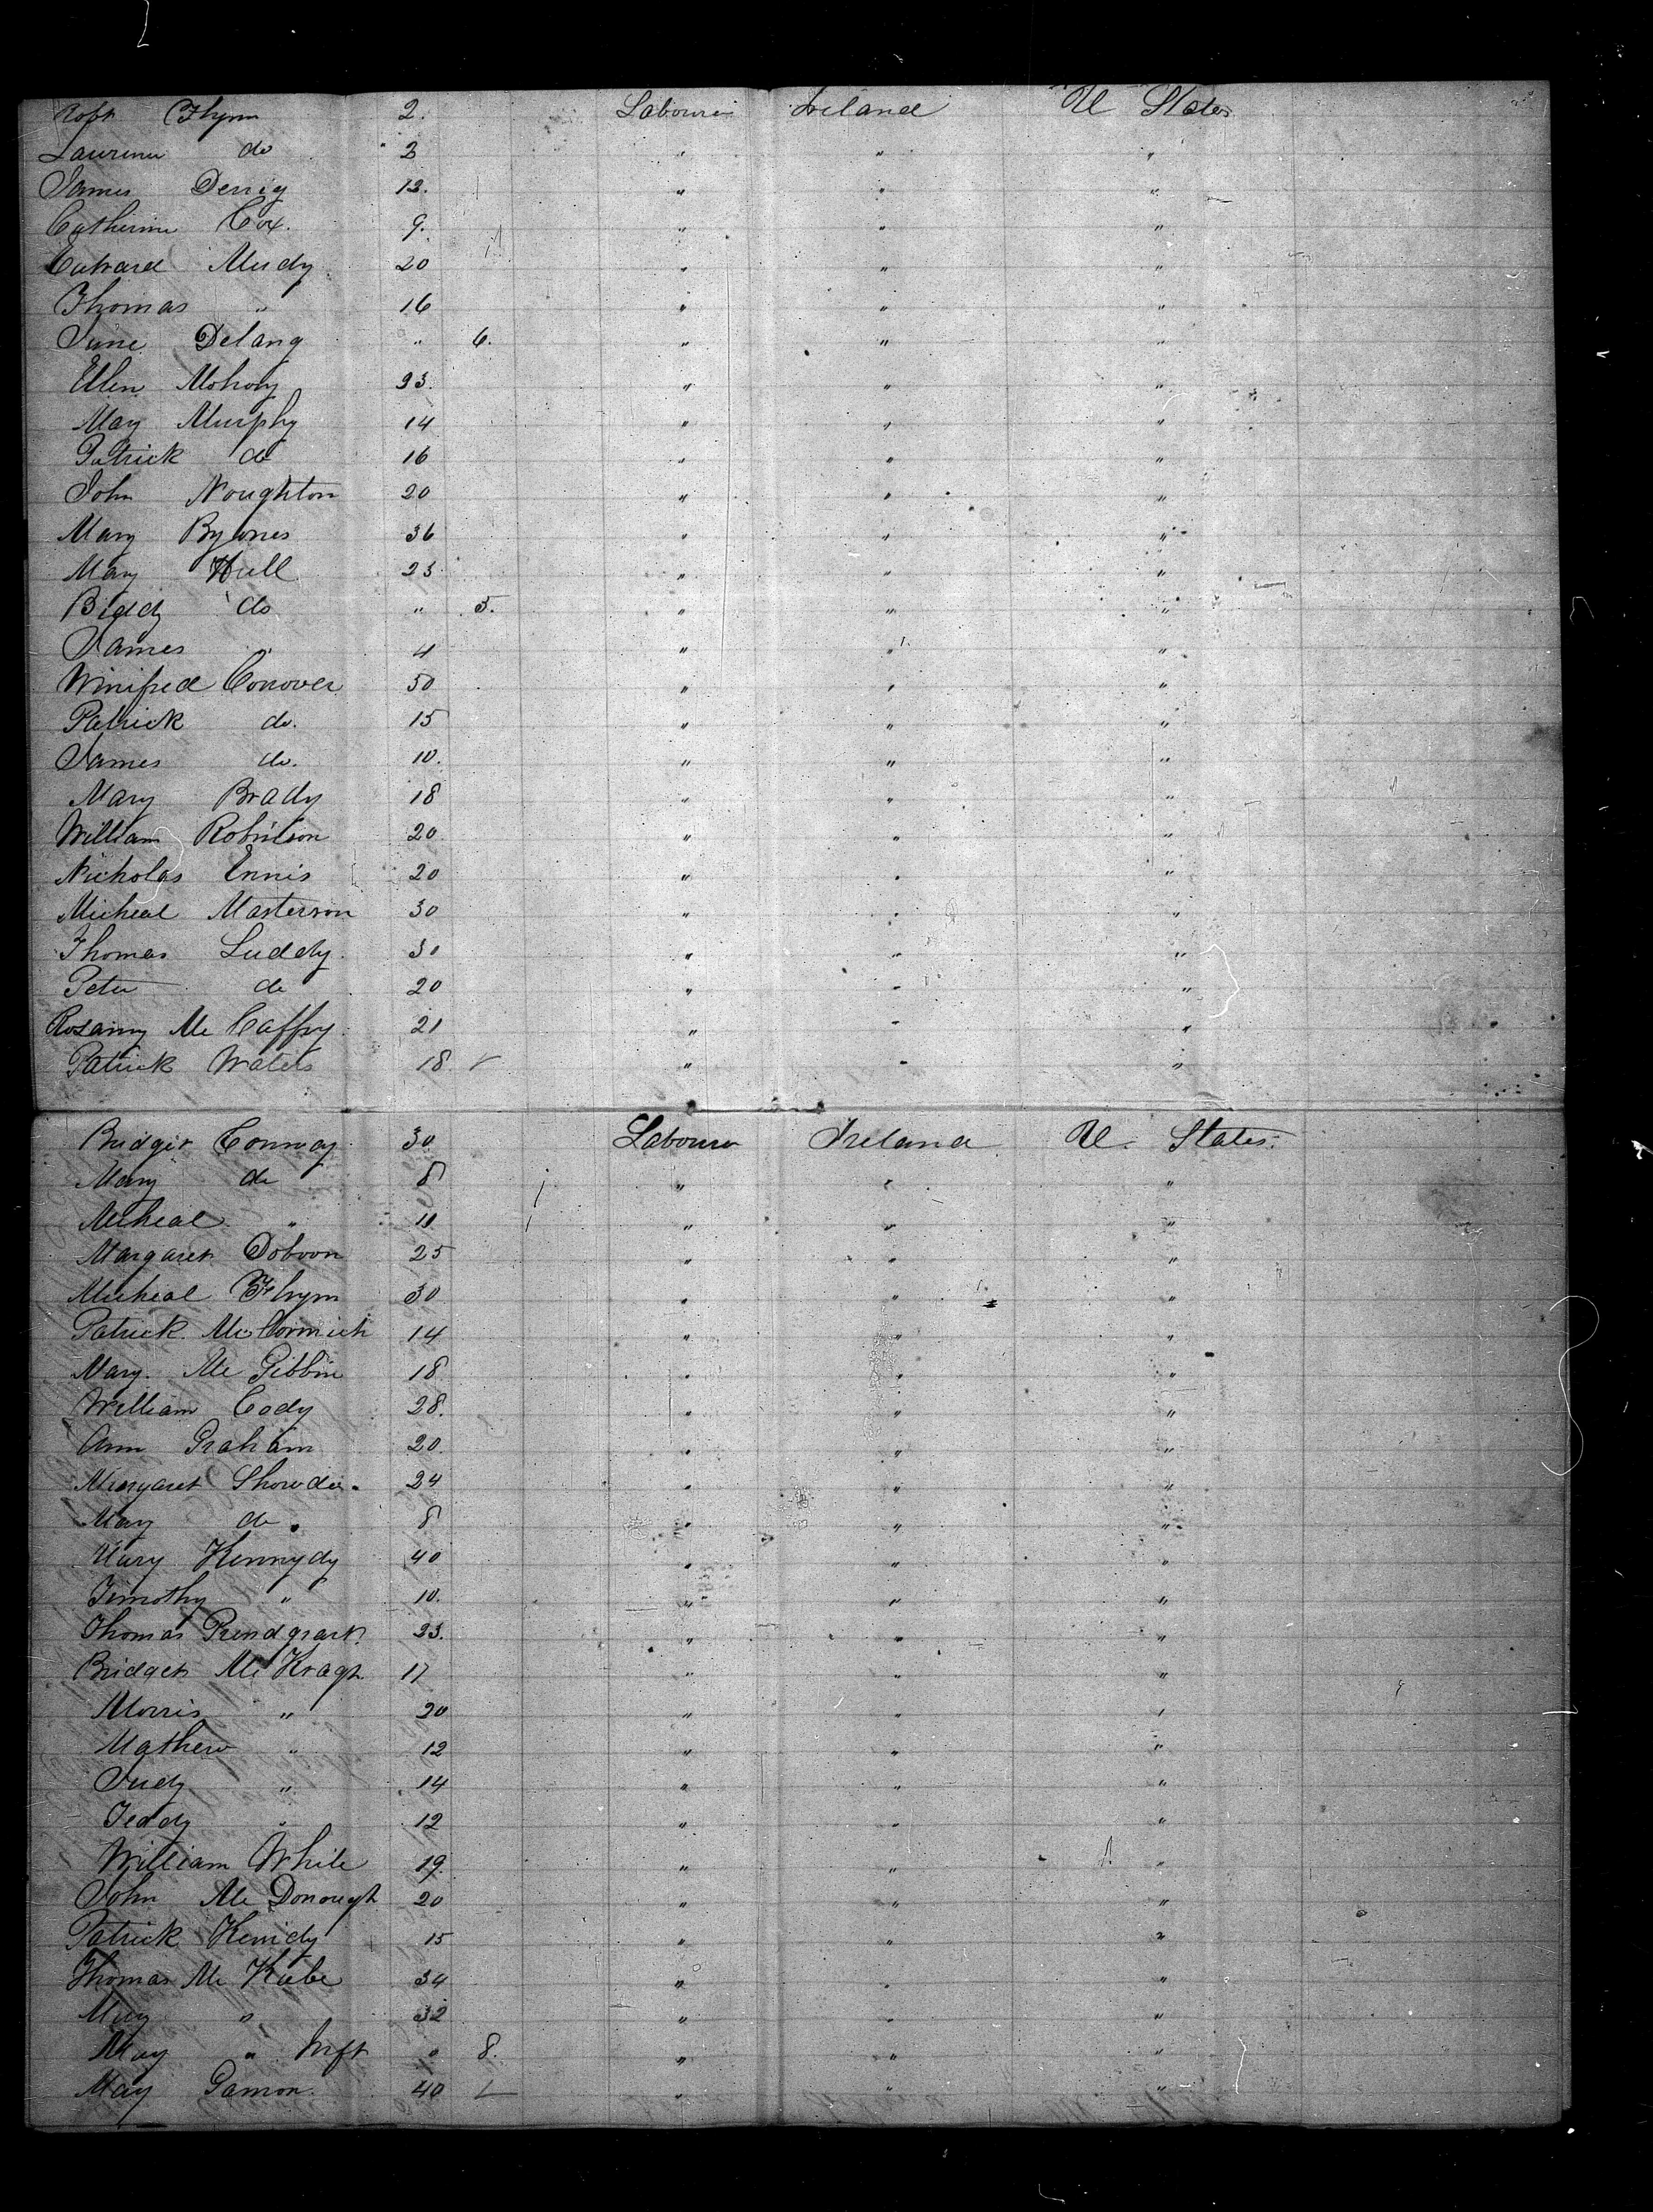 Robt Flynn 2. Labourer Ireland U States
Laurence do 2 " " "
James Derrig 12. " " "
Catherine Cox. 9. " " "
Edward Mudy 20 " " "
Thomas " 16 " " "
June Delany " 6. " " "
Ellen Mohony 23. " " "
Mary Murphy 14 " " "
Patrick do 16 " " "
John Noughton 20 " " "
Mary Byrnes 36 " " "
Mary Hull 23 " " "
Biddy do " 5. " " "
James " 4 " " "
Winifred Conover 50 " " "
Patrick do. 15 " " "
James do. 10. " " "
Mary Brady 18 " " "
William Robinson 20 " " "
Nicholas Ennis 20 " " "
Micheal Masterson 30 " " "
Thomas Luddy 30 " " "
Peter do 20 " " "
Rosanny Mc Caffry 21 " " "
Patrick Waters 18. " " "
Bridget Conway 30. Labourer Ireland U. States.
Mary do 8 " " "
Micheal " 11 " " "
Margaret Doboon 25 " " "
Micheal Flynn 30 " " "
Patrick McCormick 14 " " "
Mary. Mc Gibbin 18 " " "
William Cody 28. " " "
Ann Graham 20 " " "
Margaret Showder 24 " " "
Mary do 8 " " "
Mary Kennydy 40 " " "
Timothy " 10. " " "
Thomas Prendgrast. 23. " " "
Bridget Mc Kragh 17 " " "
Morris " 20 " " "
Mathew " 12 " " "
Judy " 14 " " "
Teddy " 12 " " "
William White 19. " " "
John Mc Donough 20 " " "
Patrick Kenidy 15 " " "
Thomas Mc Kube 34 " " "
Mary " 32 " " "
Mary " Inft " 8. " " "
Mary Gamon 40 " " "